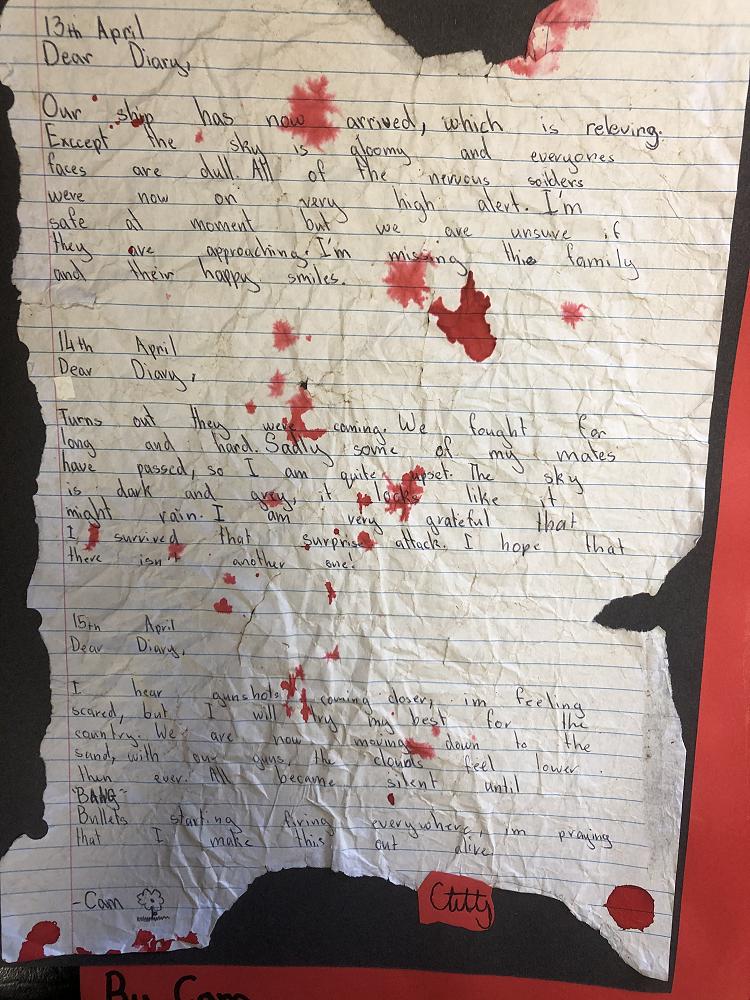 13th April
Dear Diary,
Our ship has now arrived, which is releving.
Exccept the sky is gloomy and everyones
faces are dull. All of the nervous soilders
were now on very high alert. I'm
safe at moment but we are unsure if
they are approaching. I'm missing the family
and their happy smiles.
14th April
Dear Diary,
Turns out they were coming. We fought for
long and hard. Sadly some of my mates
have passed, so I am quite upset. The sky
is dark and grey, it looks like it
might rain. I am very grateful that
I survived that surprise attack. I hope that
there isn't another one.
15th April
Dear Diary,
I hear gunshots coming closer, im feeling
scared, but I will try my best for the
country. We are now moving down to the
sand, with our guns, the clouds feel lower
then ever. All became silent until
"BANG"
Bullets starting firing everywhere, im praying
that I make this out alive
-Cam
By Cam